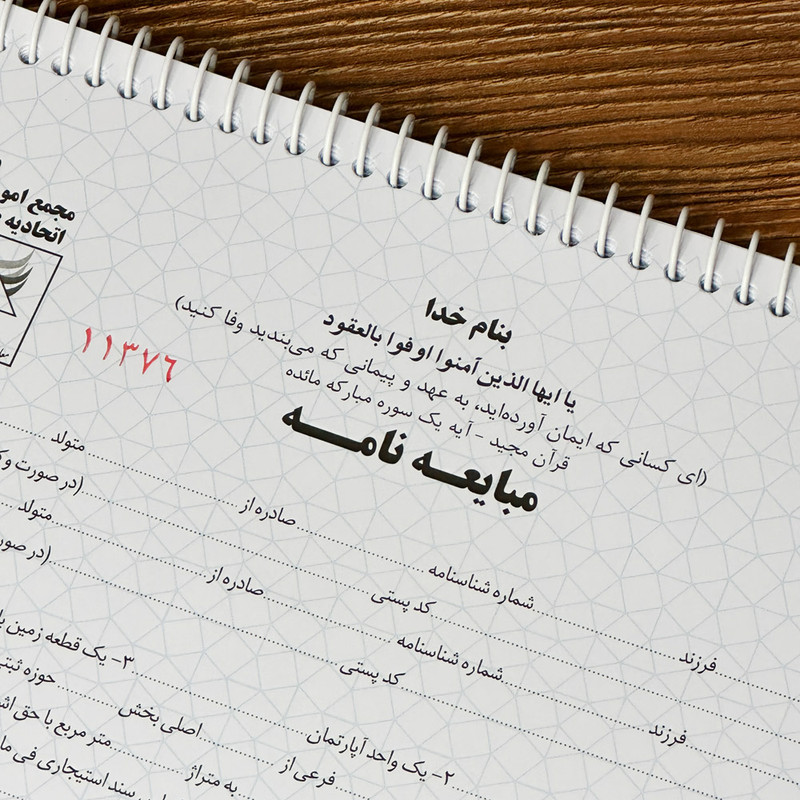 مجمع
اتحادیه
بنام خدا
یا ایها الذین آمنوا اوفوا بالعقود
(ای کسانی که ایمان آورده‌اید، به عهد و پیمانی که می‌بندید وفا کنید)
قرآن مجید - آیه یک سوره مبارکه مائده
۱۱۳۷۶
مبایعه نامه
فرزند شماره شناسنامه صادره از متولد
کد پستی (در صورت
فرزند شماره شناسنامه صادره از متولد
کد پستی (در صور
۲- یک واحد آپارتمان ۳- یک قطعه زمین
فرعی از اصلی بخش حوزه ثبتی
به متراژ متر مربع با حق
سند استیجاری فی ما